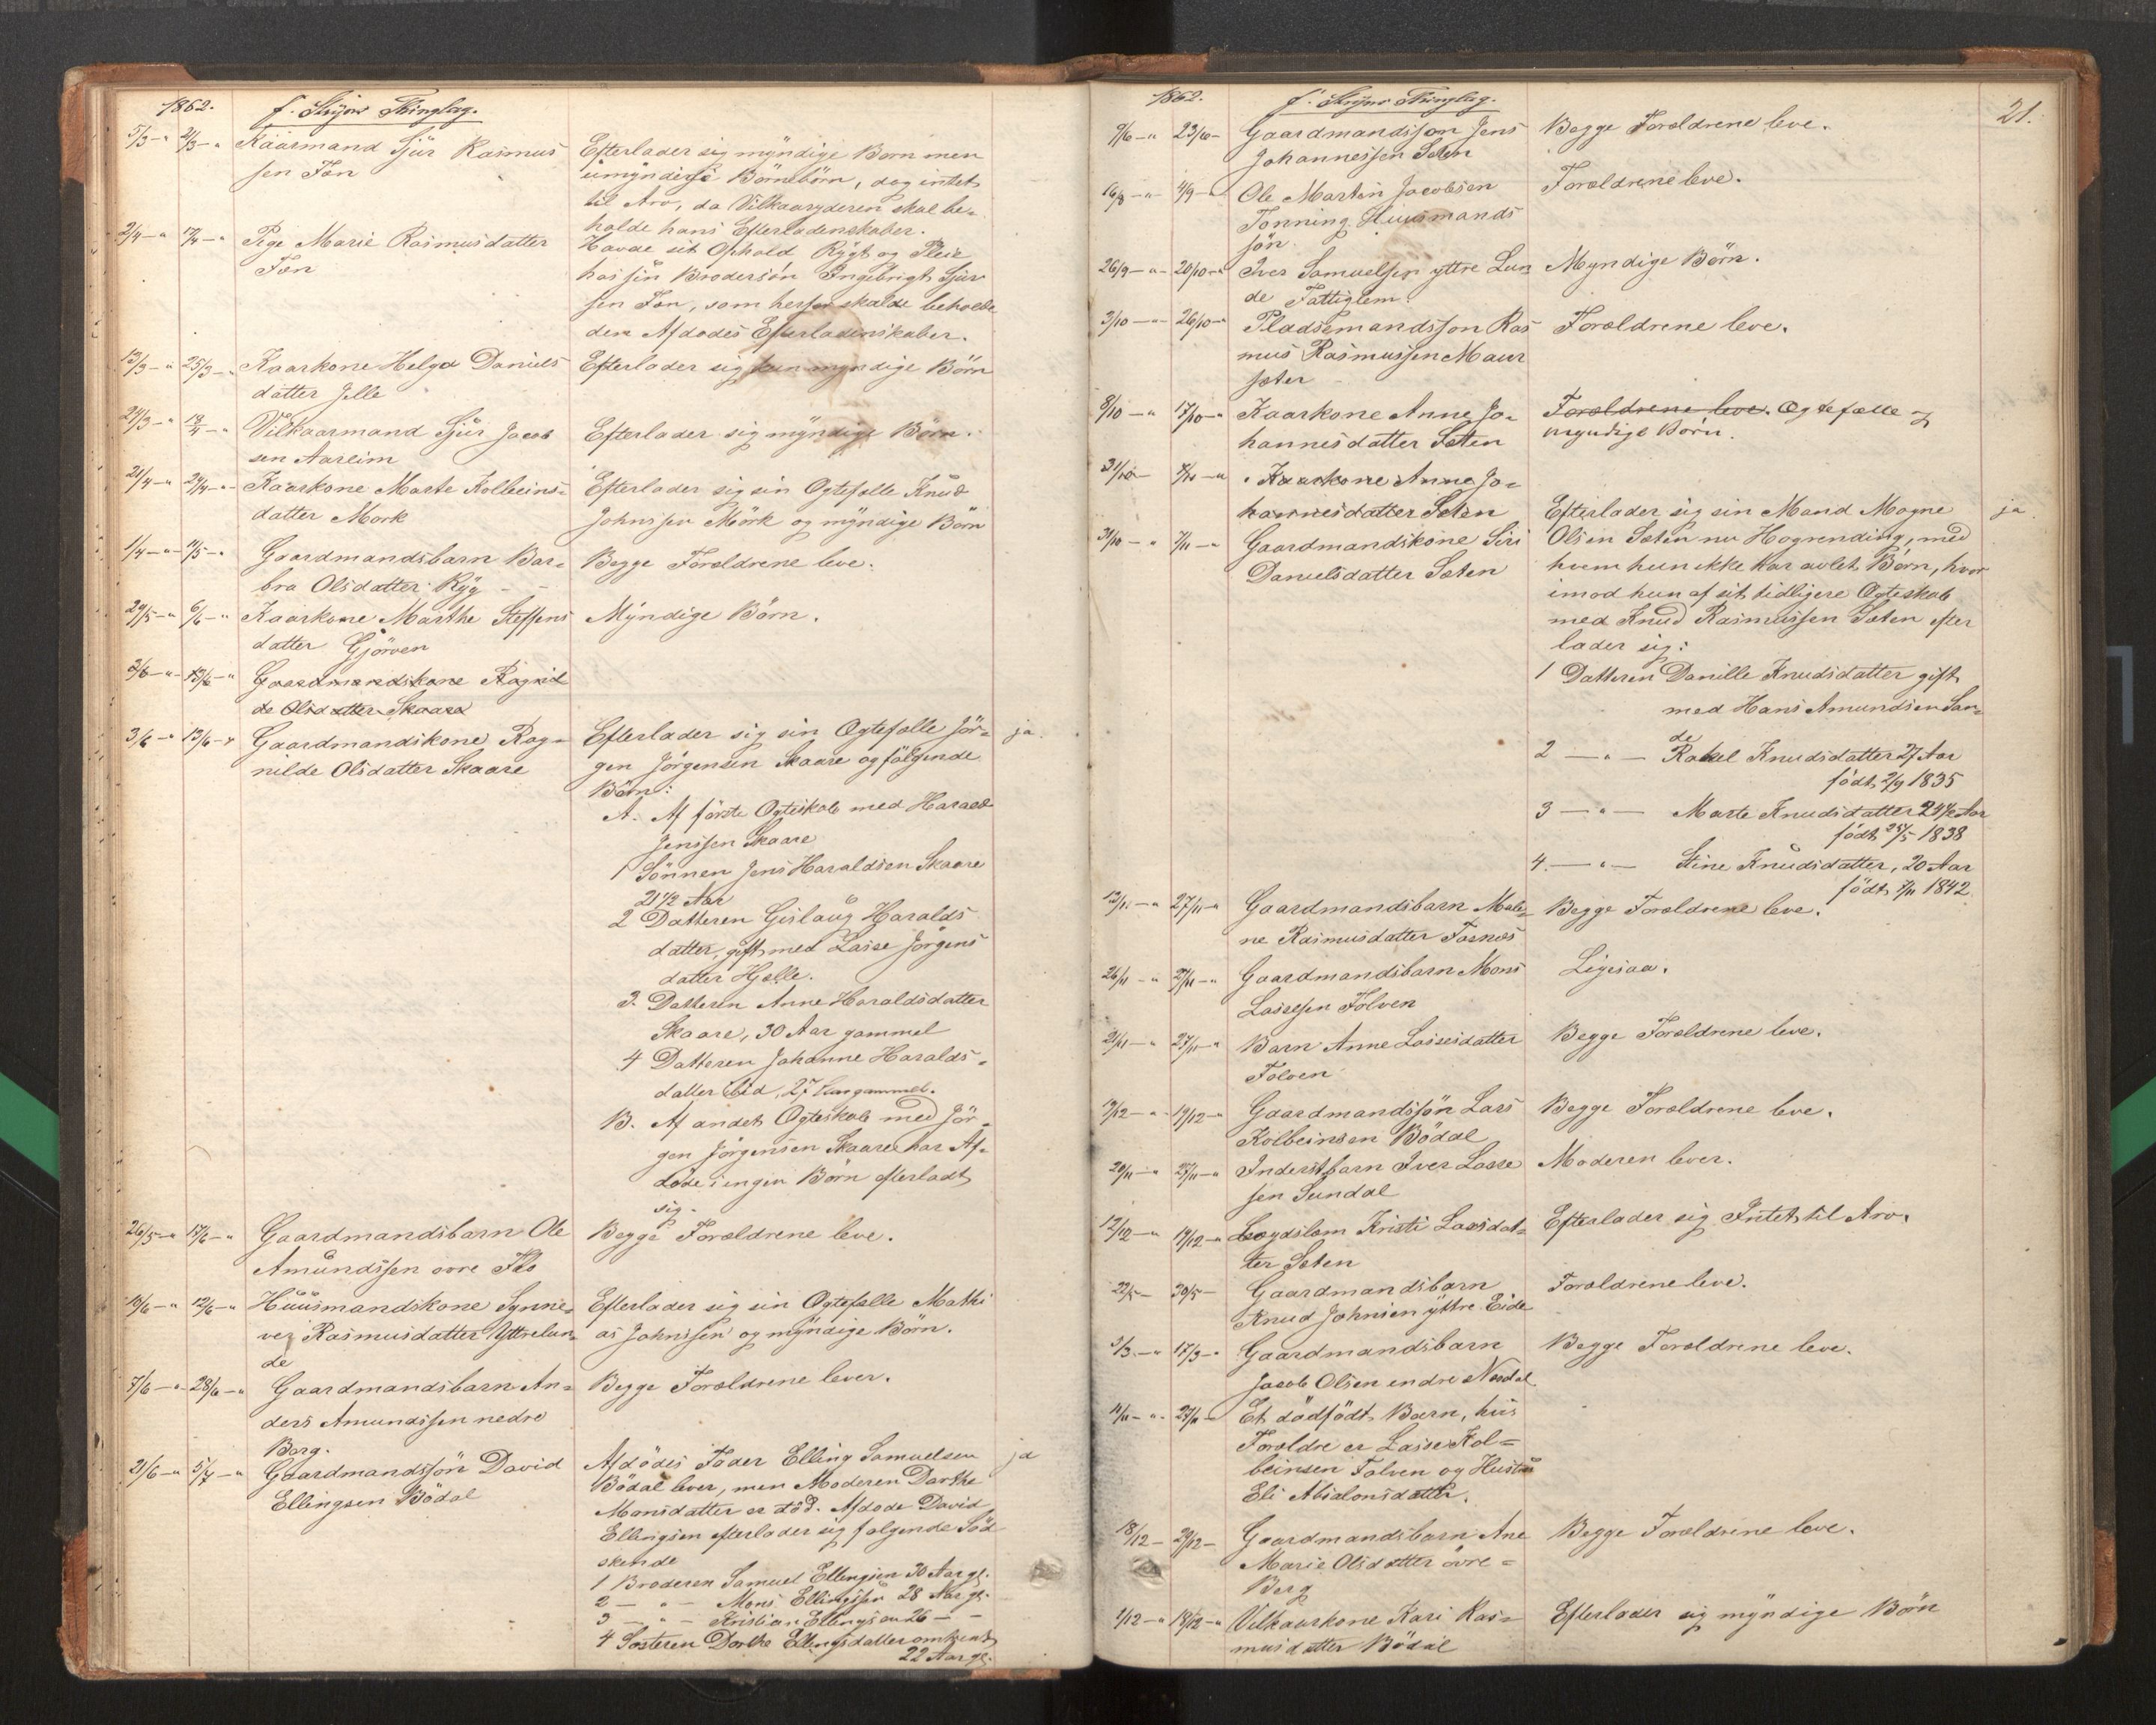 1862.
f. Stryns Thinglag.
5/3 - " 21/3 - " Kaarmand Sjur Rasmus
sen Fæn
Efterlader sig myndige Børn men
umyndige Börnebörn, dog intet
til Arv, da Vilkaarsyderen skal be-
holde hans Efterladenskaber.
2/4 - " 17/4 - " Pige Marie Rasmusdatter
Fæn
Havde sit Ophold Rygt og Pleie
hos sin Brodersön Ingebrigt Sjur
sen Fæn, som herfor skulde beholde
den Afdødes Efterladenskaber.
13/3 - " 25/3 - " Kaarkone Helga Daniels
datter Jelle
Efterlader sig kun myndige Börn
27/3 - " 19/4 - " Vilkaarmand Sjur Jacob
sen Aarheim
Efterlader sig myndige Børn.
21/4 - " 29/4 - " Kaarkone Marte Kolbeins-
datter Mork
Efterlader sig sin Ogtefælle Knud
Johnssen Mörk og myndige Börn
1/4 - " 11/5 - " Gaardmandsbarn Bar-
bra Olsdatter Ryg
Begge Forældrene leve.
29/5 - " 6/6 - " Kaarkone Marthe Steffens
datter Gjörven
Myndige Börn.
3/6 - " 13/6 - " Gaardmandskone Ragnil
de Olsdatter Skaare
3/6 - " 13/6 - " Gaardmandskone Rag-
nilde Olsdatter Skaare
Efterlader sig sin Ogtefælle Jör-
gen Jörgensen Skaare og fölgende
Börn:
ja.
A. Af förste Ogteskab med Harald
Jenssen Skaare
1 Sönnen Jens Haraldsen Skaare
21 1/2 Aar
2 Datteren Gislaug Haralds
datter, gift med Lasse Jörgens
datter Hjelle.
3. Datteren Anne Haraldsdatter
Skaare, 30 Aar gammel
4 Datteren Johanne Haralds-
datter ibid, 27 Aar gammel.
B. Af andet Ogteskab med Jör-
gen Jörgensen Skaare har Af-
døde ingen Börn efterladt
sig.
26/5 - " 17/6 - " Gaardmandsbarn Ole
Amundssen övre Flo
Begge Forældrene leve.
10/6 - " 12/6 - " Huusmandskone Synne-
ve Rasmusdatter Yttrelun-
de
Efterlader sig sin Ogtefælle Mathi
as Johnssen og myndige Börn.
7/6 - " 28/6 - " Gaardmandsbarn An-
ders Amundssen nedre
Berg.
Begge Forældrene lever.
21/6 - " 5/7 - " Gaardmandssön David
Ellingsen Bödal
Afdödes Fader Elling Samuelsen
Bödal lever, men Moderen Darthe
Monsdatter er död. Afdøde David
Ellingsen efterlader sig følgende Söd
skende
ja
1 Broderen Samuel Ellingsen 30 Aar gl.
2 - " - Mons Ellingssen 28 Aar gl.
3 - " - Kristian Ellingsen 26 - -
4 Søsteren Dorthe Ellingsdatter omtrent
22 Aar gl.
1862.
f. Stryns Thinglag.
21.
9/6 - " 23/6 - Gaardmandsson Jens
Johannessen Sæten
Begge Forældrene leve.
16/8 - " 4/9 - " Ole Martin Jacobsen
Tonning Huusmands
sön
Forældrene leve.
26/9 - " 20/10 - " Iver Samuelsen yttre Lun
de Fattiglem.
Myndige Börn.
3/10 - " 26/10 - " Pladsemandsson Ras
mus Rasmussen Maur
sæter
Forældrene leve.
8/10 - " 17/10 - " Kaarkone Anne Jo-
hannesdatter Sæten
Forældrene leve. Ogtefælle og
myndige Börn.
31/10 - 7/11 - " Kaarkone Anne Jo-
hannesdatter Sæten
31/10 - " 7/11 - " Gaardmandskone Siri
Danielsdatter Sæten
Efterlader sig sin Mand Mogne
Olsen Sæten nu Hogrending, med
hvem hun ikke har avlet Børn, hvor
imod hun af sit tidligere Ogteskab
med Knud Rasmussen Sæten efter
lader sig:
ja
1 Datteren Danille Knudsdatter gift
med Hans Amundsen San-
de
2 - " - Rakel Knudsdatter 27 Aar
födt 2/9 1835
3 - " - Marte Knudsdatter 24 1/2 Aar
födt 25/5 1838
4. - " - Stine Knudsdatter, 20 Aar
födt 7/11 1842.
12/11 - " 27/11 - " Gaardmandsbarn Male-
ne Rasmusdatter Fosnæs
Begge Forældrene leve.
26/11 - " 27/11 - " Gaardmandsbarn Mons
Lassesen Folven
Ligesaa.
21/11 - " 27/11 - " Barn Anne Lassesdatter
Folven
Begge Forældrene leve.
13/12 - " 19/12 - " Gaardmandssön Lars
Kolbeinsen Bödal
Begge Forældrene leve.
20/11 - " 27/11 - " Inderstbarn Iver Lasse
sen Sundal
Moderen lever.
12/12 - " 19/12 - " Lægdslem Kristi Larsdat-
ter Sæten
Efterlader sig Intet til Arv.
22/5 - 30/5 - Gaardmandsbarn
Knud Johnsen yttre Eide
Forældrene leve.
3/3 - " 17/3 - " Gaardmandsbarn
Jacob Olsen endre Nesdal
Begge Forældrene leve.
11/11 - " 27/11 - Et dödfödt Barn, hvis
Forældre er Lasse Kol-
beinsen Folven og Hustru
Eli Absalonsdatter.
18/12 - 29/12 - Gaardmandsbarn Ane
Marie Olsdatter övre -
Berg
Begge Forældrene leve.
1/12 - " 19/12 - " Vilkaarkone Kari Ras-
musdatter Bödal
Efterlader sig myndige Börn